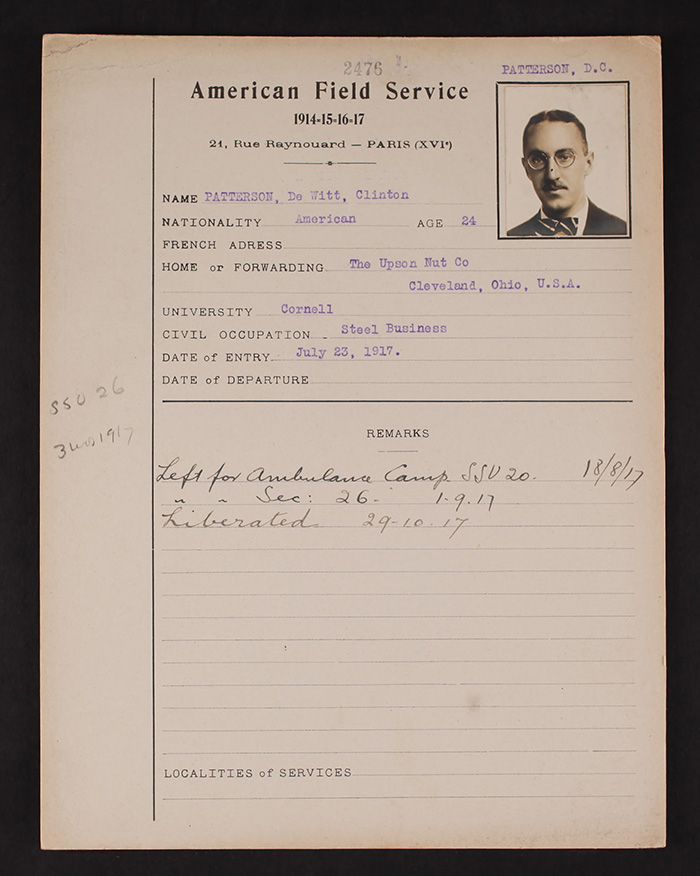 2476
PATTERSON, D.C.
American Field Service
1914-15-16-17
21, Rue Raynouard — PARIS (XVIe)
NAME PATTERSON, De Witt, Clinton
NATIONALITY American AGE 24
FRENCH ADRESS
HOME or FORWARDING The Upson Nut Co
Cleveland, Ohio, U.S.A.
UNIVERSITY Cornell
CIVIL OCCUPATION Steel Business
DATE of ENTRY July 23, 1917.
DATE of DEPARTURE
SSU 26
3 mo 1917
REMARKS
Left for Ambulance Camp SSU 20. 18/8/17
" " Sec: 26. 1-9.17
Liberated. 29-10-17
LOCALITIES of SERVICES